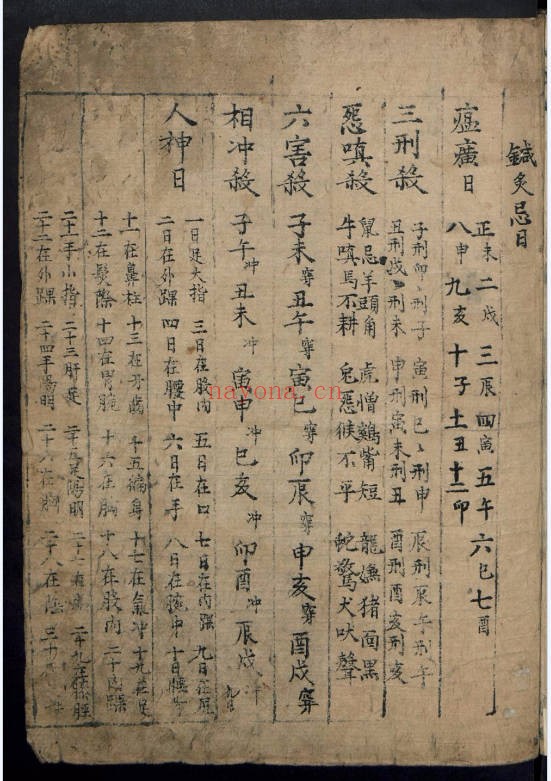 鍼灸忌日
瘟㾮日 正未 二戌 三辰 四寅 五午 六巳 七酉
八申 九亥 十子 土丑 十二卯
三刑殺 子刑卯卯刑子 寅刑巳巳刑申 辰刑辰午刑午
丑刑戌戌刑未 申刑寅未刑丑 酉刑酉亥刑亥
惡嗔殺 鼠忌羊頭角 虎憎鷄觜短 龍嫌猪面黑
牛嗔馬不耕 兔惡猴不平 蛇驚犬吠聲
六害殺 子未穿 丑午穿 寅巳穿 卯辰穿 申亥穿 酉戌穿
相冲殺 子午冲 丑未冲 寅申冲 巳亥冲 卯酉冲 辰戌冲
人神日 一日足大指 三日在股內 五日在口 七日在內踝 九日在尻
二日在外踝 四日在腰中 六日在手 八日在腕中 十日腰
十一在鼻柱 十三在牙齒 十五徧身 十七在氣冲 十九在足
十二在髮際 十四在胃脘 十六在胸 十八在股內 二十內踝
二十一手小指 二十三肝足 二十五足陽明 二十七 二十九在膝脛
二十二在外踝 二十四手陽明 二十六在胸 二十八在陰 三十
nayona.cn